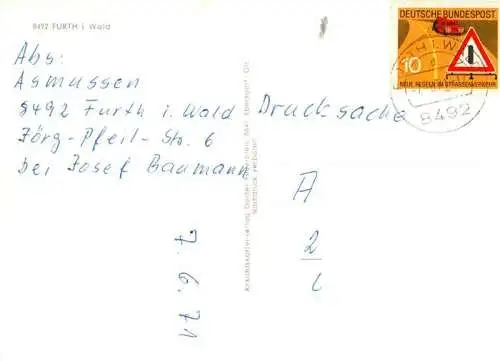 8492 FURTH i. Wald
Abs:
Asmussen
8492 Furth i. Wald
Jörg-Pfeil-Str. 6
bei Josef Baumann
Drucksache
DEUTSCHE BUNDESPOST
10
NEUE REGELN IM STRASSENVERKEHR
8492
A
2
Nachdruck verboten